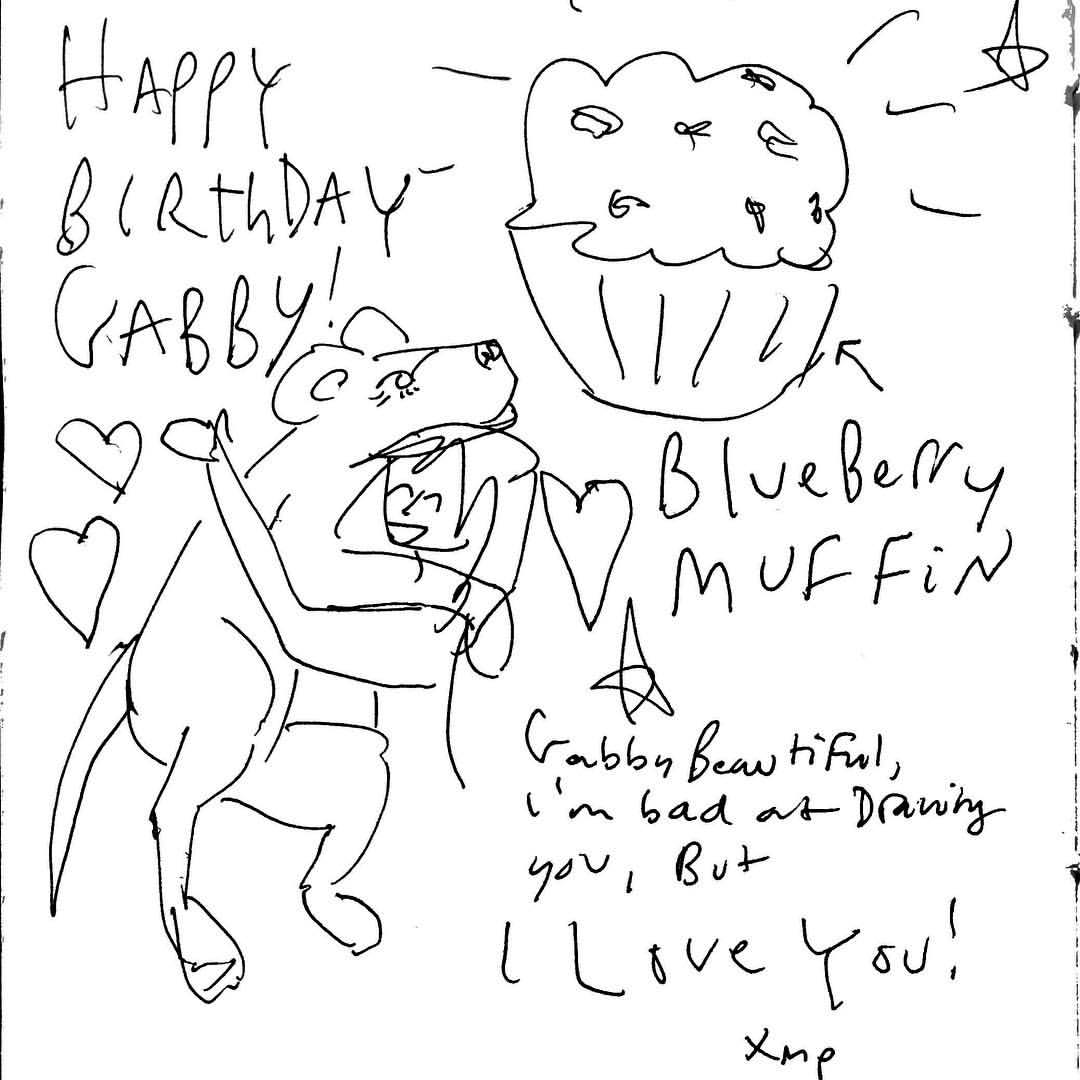 HAPPY
BIRthDAY
GABBY!
BlueBerry
MUFFiN
Gabby Beautiful,
i'm bad at Drawing
you, But
I Love You!
xmp